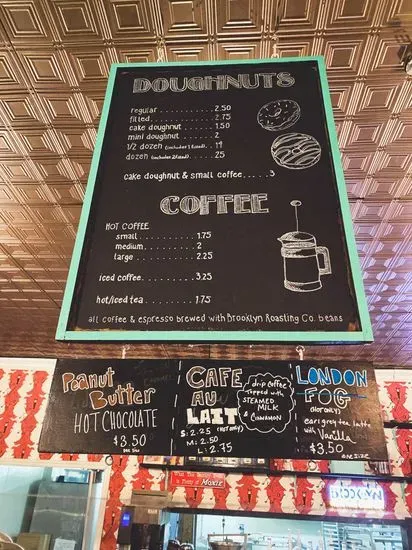 DOUGHNUTS
regular.........2.50
filled............2.75
cake doughnut....1.50
mini doughnut.....2
1/2 dozen (includes 1 filled)..14
dozen (includes 2 filled).....25
cake doughnut & small coffee....3
COFFEE
HOT COFFEE
small..........1.75
medium........2
large..........2.25
iced coffee......3.25
hot/iced tea......1.75
all coffee & espresso brewed with Brooklyn Roasting Co. beans
Peanut
Butter
HOT CHOCOLATE
$3.50
one size
CAFE
AU
LAIT
(HOT ONLY)
S: 2.25
M: 2.50
L: 2.75
drip coffee
topped with
STEAMED
MILK
& CINNAMON
LONDON
FOG
(HOT ONLY)
earl grey tea latte
with Vanilla
$3.50
ONE SIZE
MOXIE